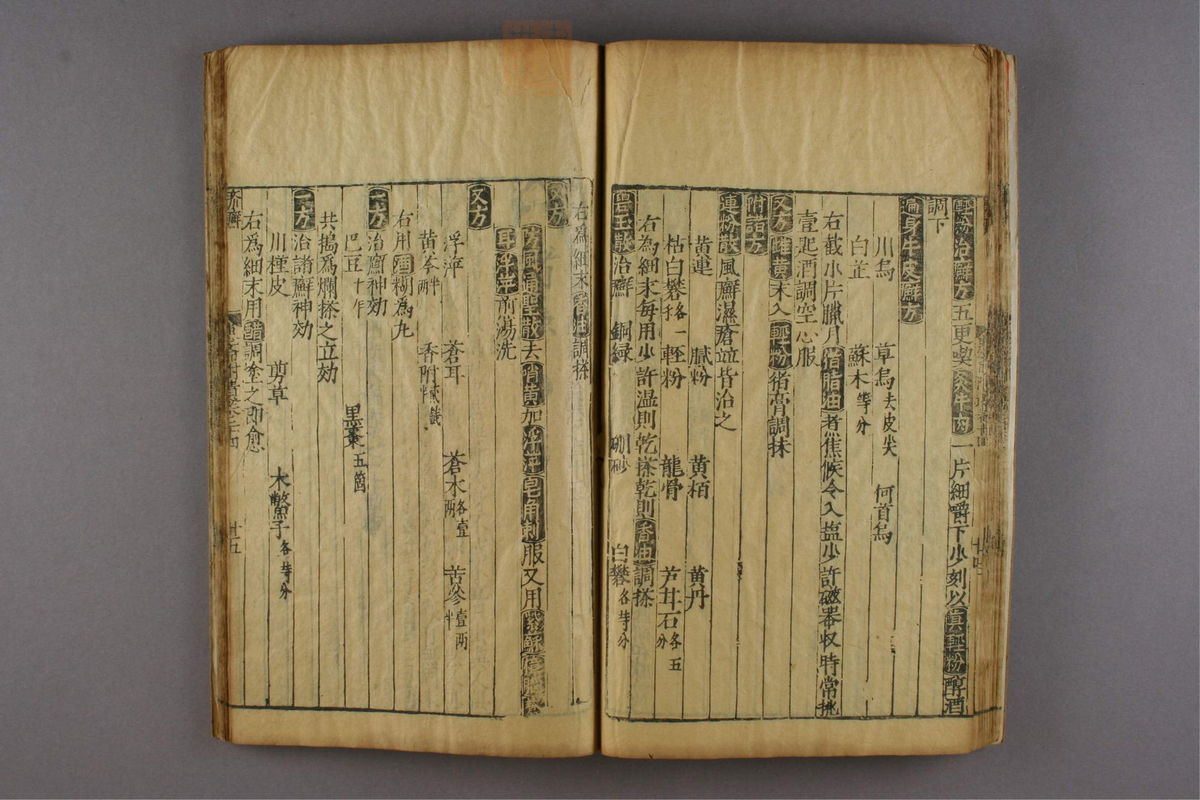 輕粉治癬方五更喫炙牛肉一片細嚼下少刻以真輕粉醇酒
調下
遍身牛皮癬方
川烏 草烏去皮尖 何首烏
白芷 蘇木等分
右截小片臘月猪脂油煮焦候令入塩少許磁器收時常挑
壹匙酒調空心服
又方雄黄末入輕粉猪膏調抹
附諸方
連粉散風癬濕瘡並皆治之
黄連 膩粉 黄栢 黄丹
枯白礬各一 輕粉 龍骨 芦甘石各五分
右為細末每用少許温則乾搽乾則香油調搽
治癬 銅緑 硼砂 白礬各等分
右為細末香油調搽
又方
防風通聖散去硝黄加浮萍皂角刺服又用
前湯洗
又方
浮萍 蒼耳 蒼朮各壹兩 苦參壹兩半
黄芩半兩 香附
右用酒糊為丸
一方治癬神効
巴豆十 黒棗五箇
共搗為爛搽之立効
一方治諸癬神効
川槿皮 剪草 木鱉子各等分
右為細末用醋調塗之即愈
卅五